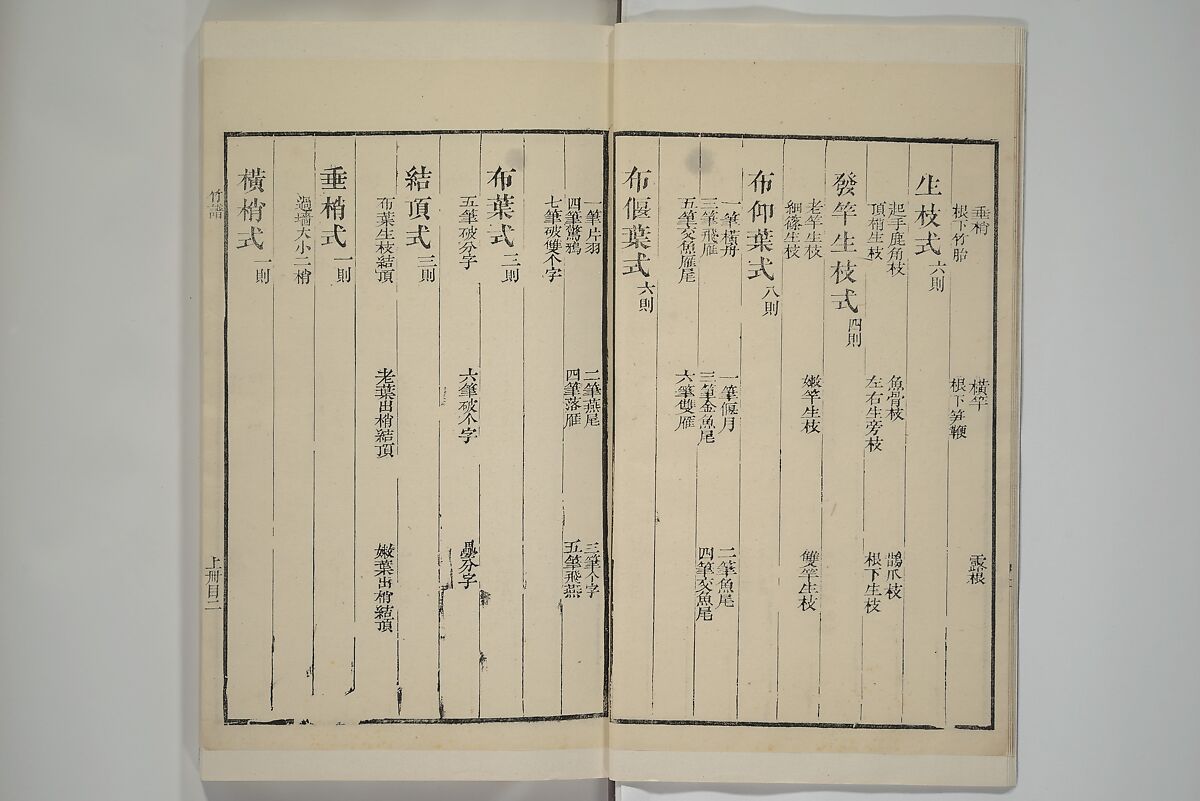 垂梢 橫竿 露根
根下竹胎 根下笋鞭
生枝式 六則
起手鹿角枝 魚骨枝 鵲爪枝
頂梢生枝 左右生旁枝 根下生枝
發竿生枝式 四則
老竿生枝 嫩竿生枝 雙竿生枝
細篠生枝
布仰葉式 八則
一筆橫舟 一筆偃月 二筆魚尾
三筆飛雁 三筆金魚尾 四筆交魚尾
五筆交魚雁尾 六筆雙雁
布偃葉式 六則
一筆片羽 二筆燕尾 三筆个字
四筆驚鴉 四筆落雁 五筆飛燕
七筆破雙个字
布葉式 三則
五筆破分字 六筆破个字 疊分字
結頂式 三則
布葉生枝結頂 老葉出梢結頂 嫩葉出梢結頂
垂梢式 一則
過墻大小二梢
橫梢式 一則
竹譜 上册目二